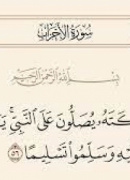 سُورَةُ الأَحْزَابِ
بِسْمِ اللَّهِ الرَّحْمَٰنِ الرَّحِيمِ
يُصَلُّونَ عَلَى النَّبِيِّ
وَسَلِّمُوا تَسْلِيمًا ٥٦